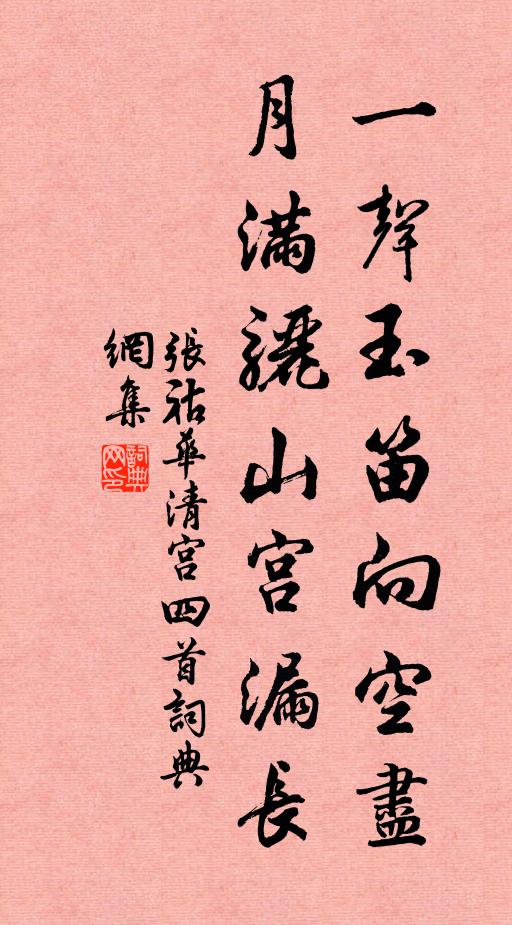 一聲玉笛向空盡
月滿驪山宮漏長
張祜華清宮四首詞典
網集
詞典
网印